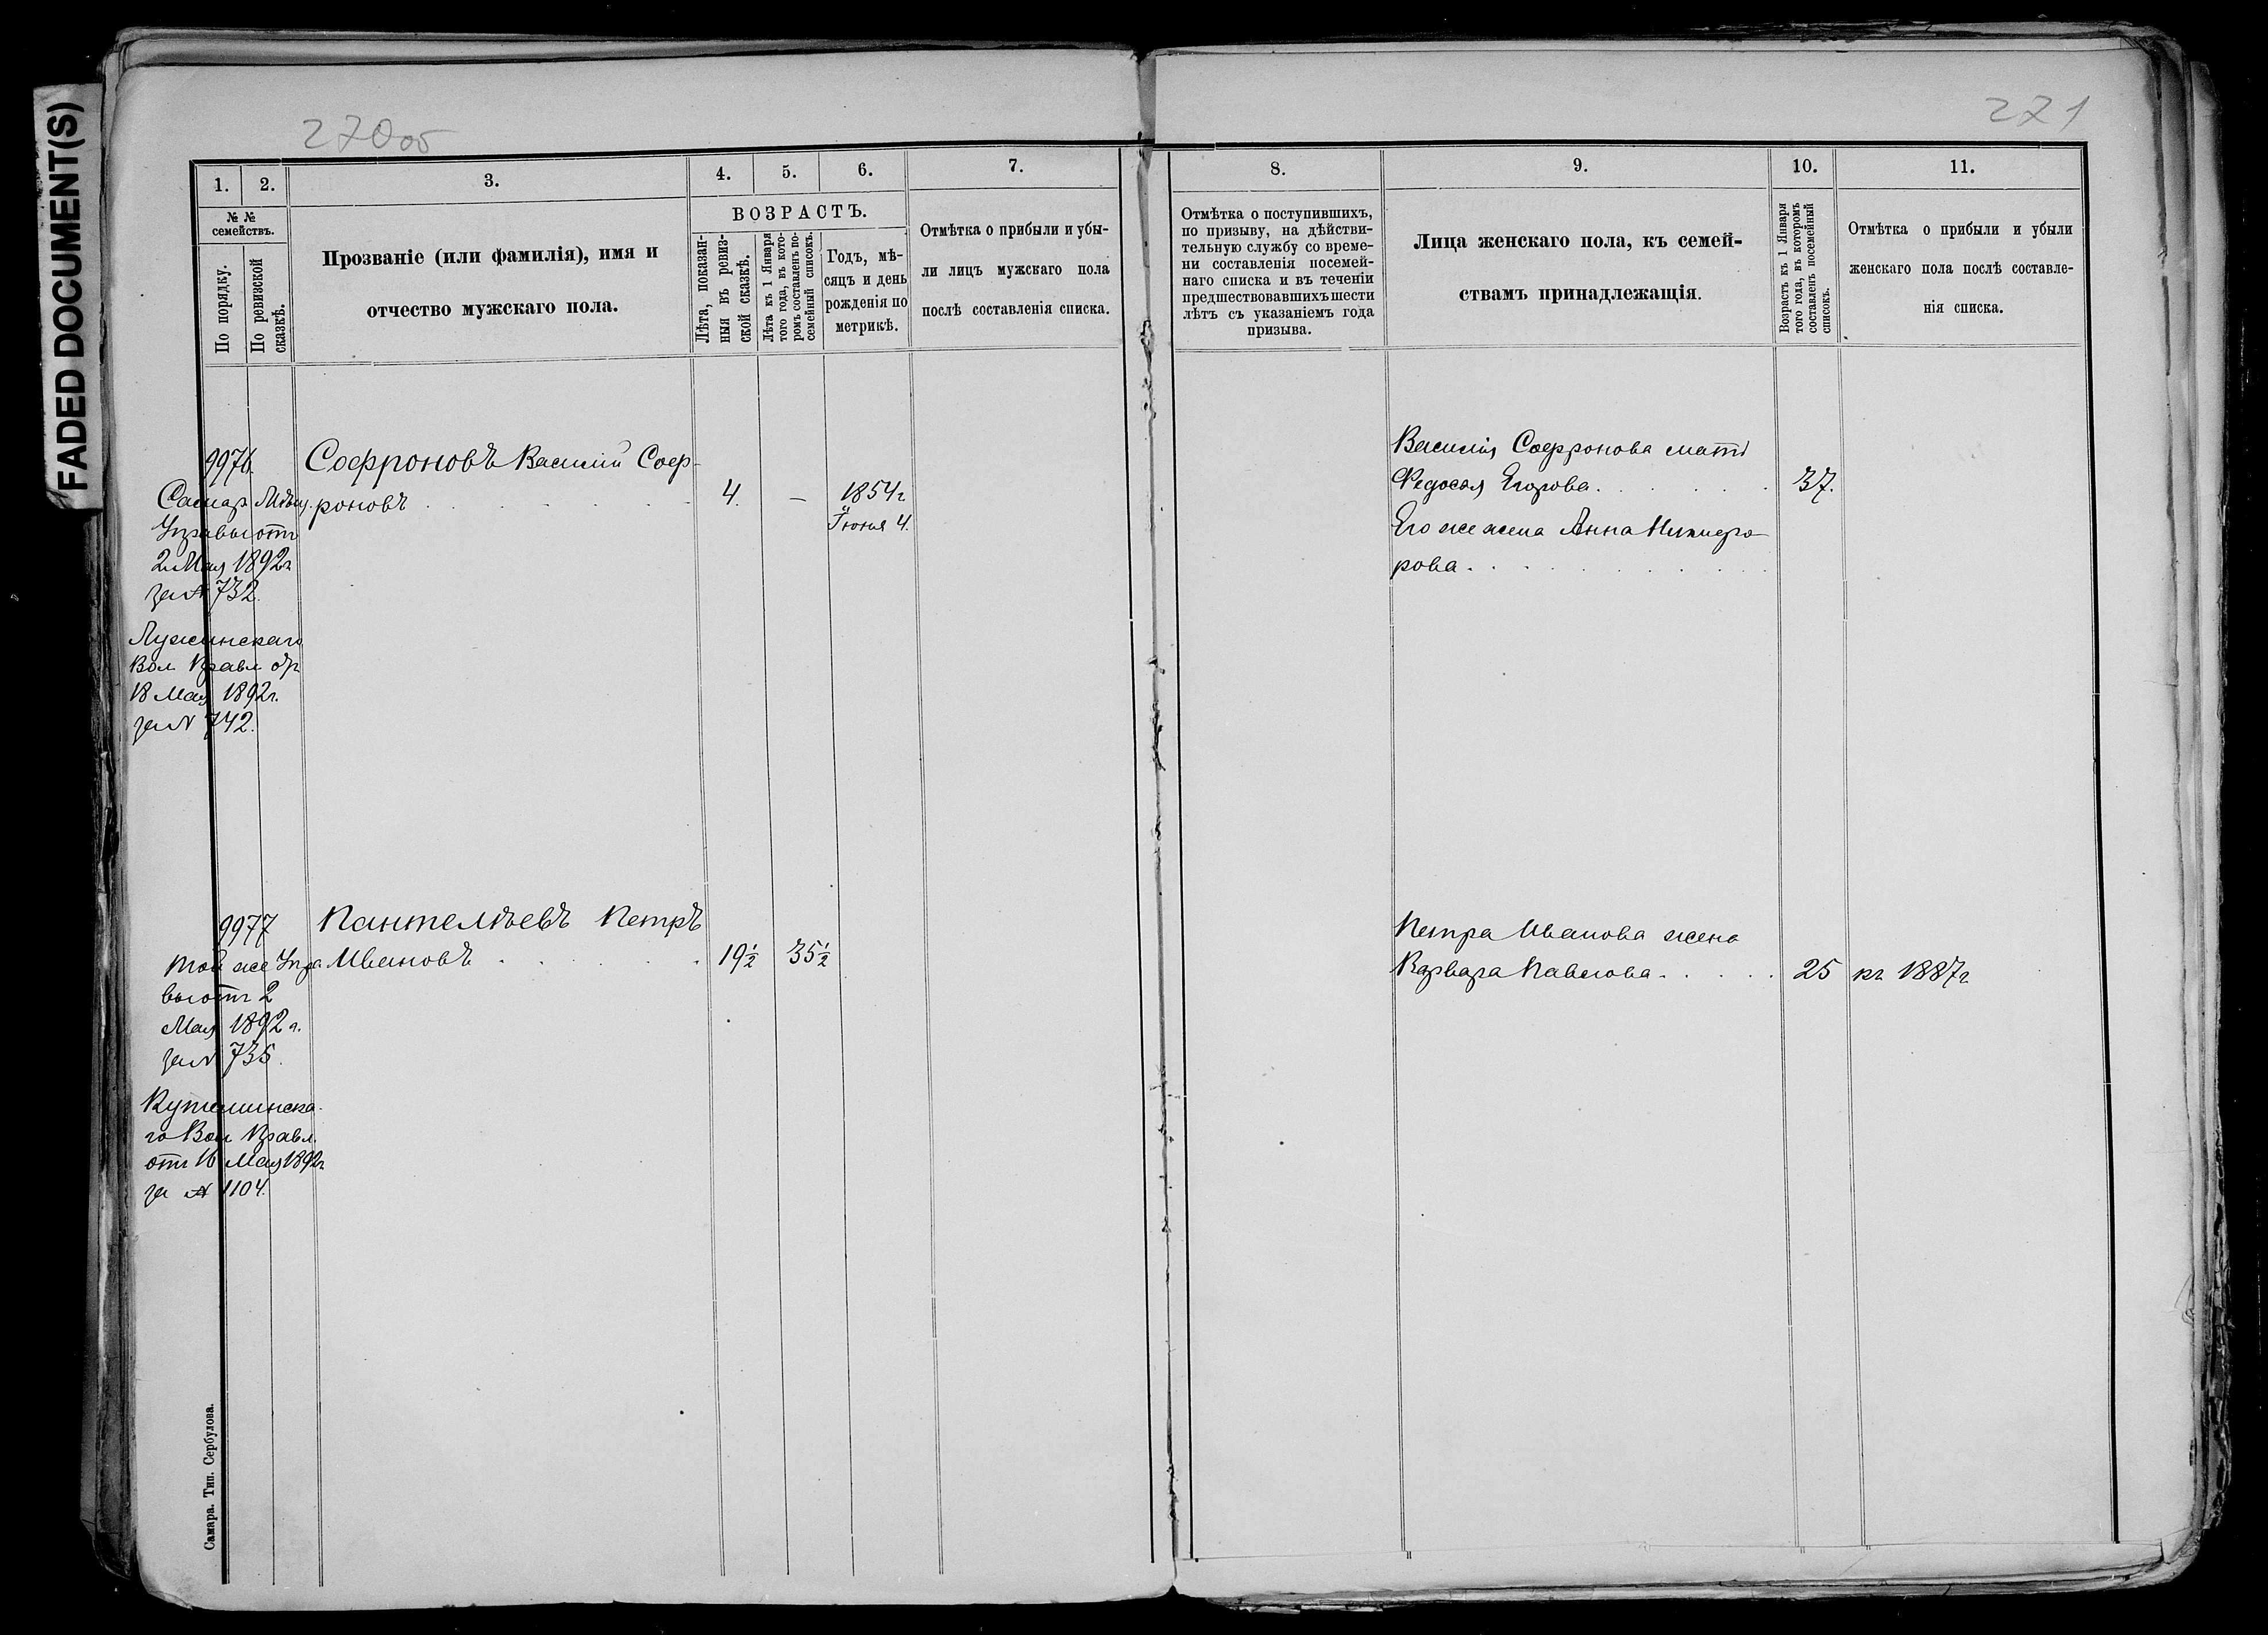 FADED DOCUMENT(S)
270об
271
1.
2.
3.
4.
5.
6.
7.
8.
9.
10.
11.
№ №
семействъ.
По порядку.
По ревизской
сказкѣ.
Прозваніе (или фамилія), имя и
отчество мужскаго пола.
ВОЗРАСТЪ.
Лѣта, показан-
ныя въ ревиз-
ской сказкѣ.
Лѣта къ 1 Января
того года, въ кото-
ромъ составленъ по-
семейный списокъ.
Годъ, мѣ-
сяцъ и день
рожденія по
метрикѣ.
Отмѣтка о прибыли и убы-
ли лицъ мужскаго пола
послѣ составленія списка.
Отмѣтка о поступившихъ,
по призыву, на дѣйстви-
тельную службу со време-
ни составленія посемей-
наго списка и въ теченіи
предшествовавшихъ шести
лѣтъ съ указаніемъ года
призыва.
Лица женскаго пола, къ семей-
ствамъ принадлежащія.
Возрастъ къ 1 Января
того года, въ которомъ
составленъ посемейный
списокъ.
Отмѣтка о прибыли и убыли
женскаго пола послѣ составле-
нія списка.
9976.
Самар. Мѣщ.
Управы отъ
2 Мая 1892 г.
за № 732.
Вол. Правл. отъ
18 Мая 1892 г.
за № 742.
Софроновъ Василій Соф-
роновъ
4.
—
1854 г.
Іюня 4.
Василія Софронова мать
Федосья Егорова.
37.
Его же жена Анна
рова.
9977
той же Упра
вы отъ 2
Мая 1892 г.
за № 735.
го Вол. Правл.
отъ 16 Мая 1892 г.
за № 1104.
Пантелѣевъ Петръ
Ивановъ
19½
35½
Петра Иванова жена
Варвара Павлова.
25
къ 1887 г.
Самара. Тип. Сербулова.